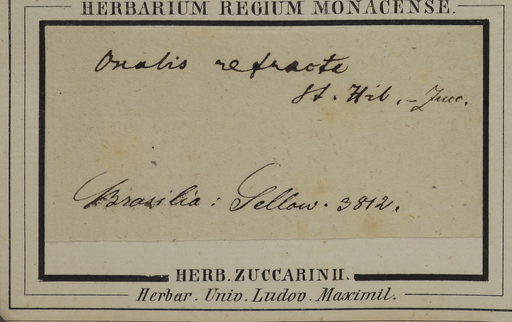 HERBARIUM REGIUM MONACENSE.
Oxalis refracta
St. Hil. – Zucc.
Brasilia: Sellow. 3812.
HERB. ZUCCARINII.
Herbar. Univ. Ludov. Maximil.